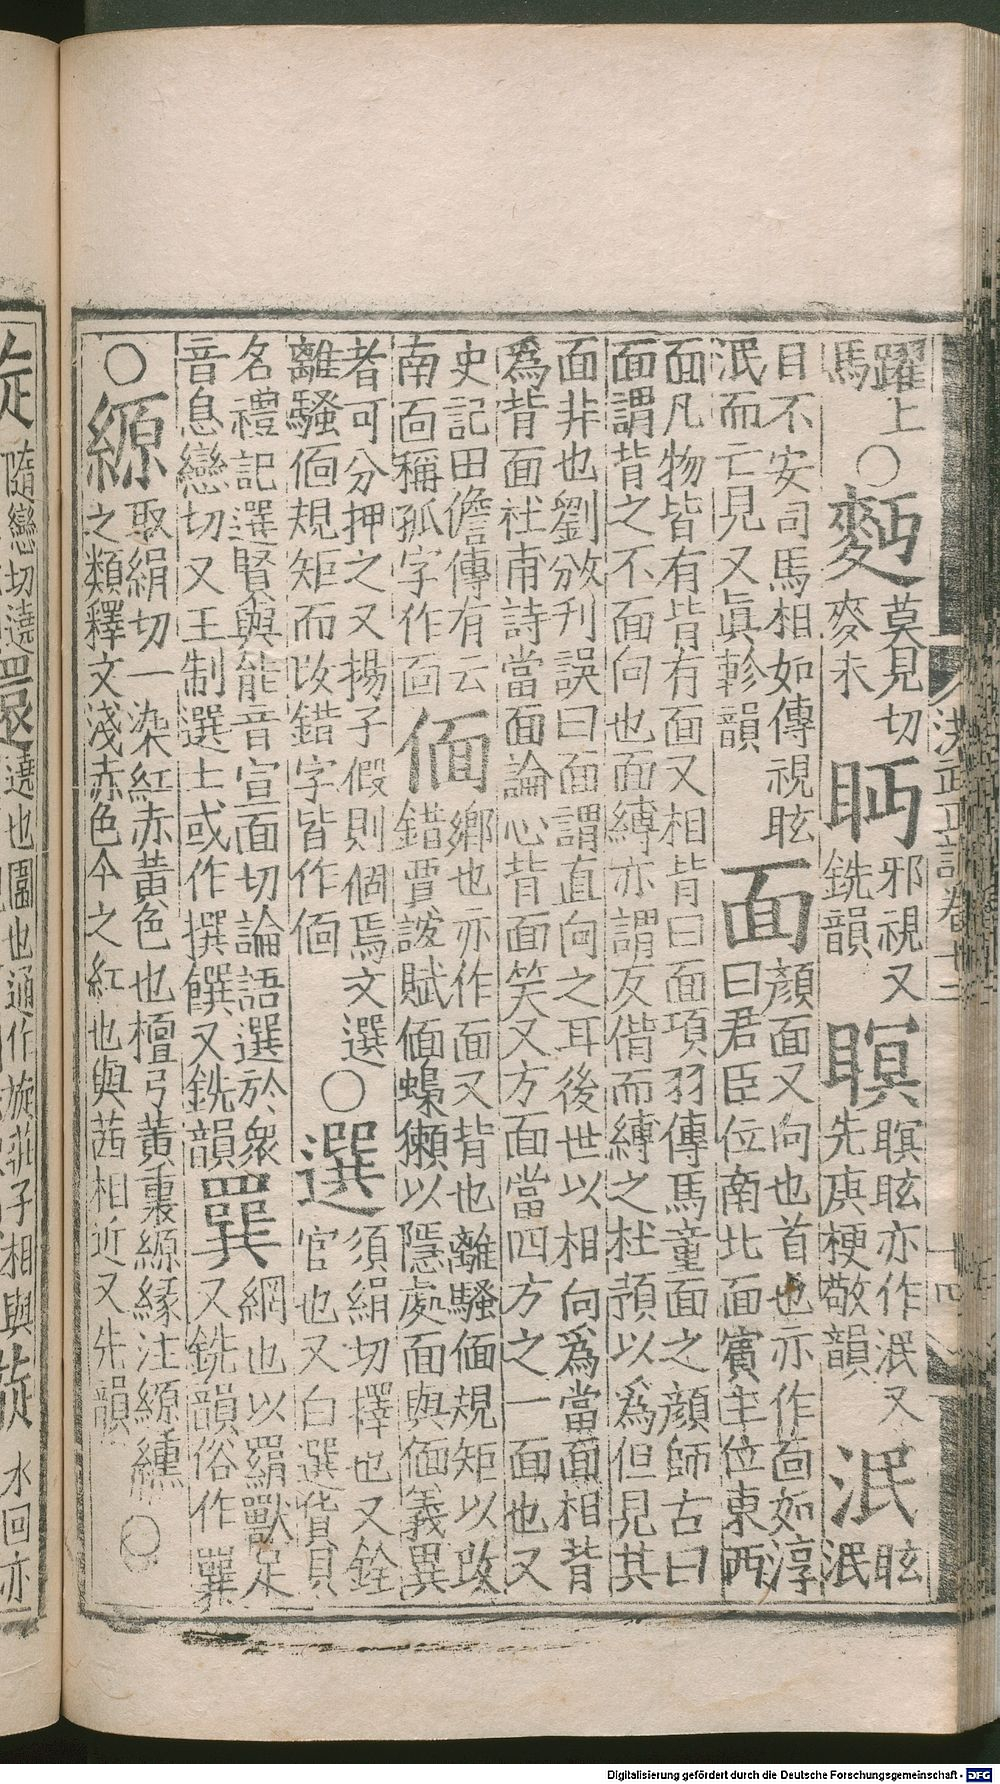 躍上○麪莫見切眄邪視又瞑瞑眩亦作泯又泯眩
馬麥末銑韻先庚梗敬韻泯
目不安司馬相如傳視眩面顔面又向也首也亦作靣如淳
泯而亡見又眞軫韻曰君臣位南北面賓主位東西
面凡物皆有背有面又相背曰面項羽傳馬童面之顔師古曰
面謂背之不面向也面縛亦謂反偝而縛之杜預以爲但見其
面非也劉攽刋誤曰面謂直向之耳後世以相向爲當面相背
爲背面杜甫詩當面論心背面笑又方面當四方之一面也又
史記田儋傳有云偭鄉也亦作面又背也離騷偭規矩以改
南靣稱孤字作靣錯賈誼賦偭蟂獺以隱處面與偭義異
者可分押之又揚子假則偭焉文選○選須絹切擇也又銓
離騷偭規矩而改錯字皆作偭官也又白選貨貝
名禮記選賢與能音宣面切論語選於衆巽綱也以羂獸足
音息戀切又王制選士或作撰饌又銑韻又銑韻俗作
○縓取絹切一染紅赤黃色也檀弓黃裏縓緣注縓纁○
之類釋文淺赤色今之紅也與茜相近又先韻
洪武正韻卷十三
十四
旋隨戀切遶還遶也圍也通作旋莊子相與漩水回亦
Digitalisierung gefördert durch die Deutsche Forschungsgemeinschaft - DFG